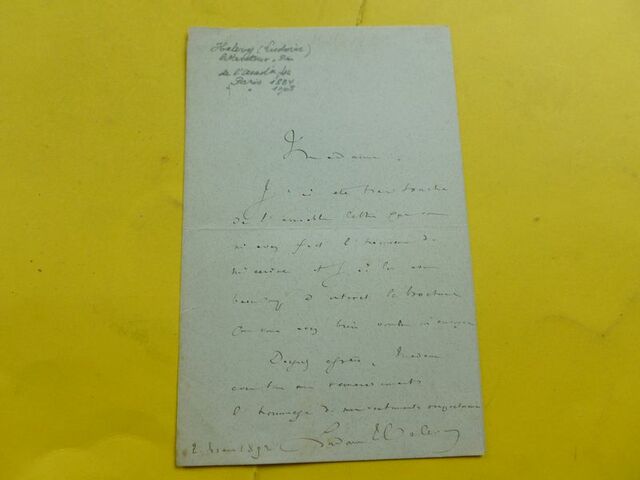 Halévy (Ludovic)
littérateur.
de l'Acad. fse
Paris 1834
" " 1908
Madame,
J'ai été très touché
de l'aimable lettre que vous
m'avez fait l'honneur de
m'écrire et j'ai lu avec
beaucoup d'intérêt la brochure
que vous avez bien voulu m'envoyer
Daignez agréer, Madame
avec tous mes remerciements
l'hommage de mes sentiments respectueux
Ludovic Halévy
2 mars 1892